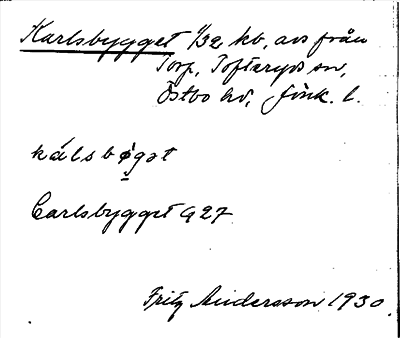 Karlsbygget 1/32 kb, avs från
Torp, Tofteryds sn,
Östbo hd, Jönk. l.
kálsbøgət
Carlsbygget G 27
Fritz Andersson 1930.